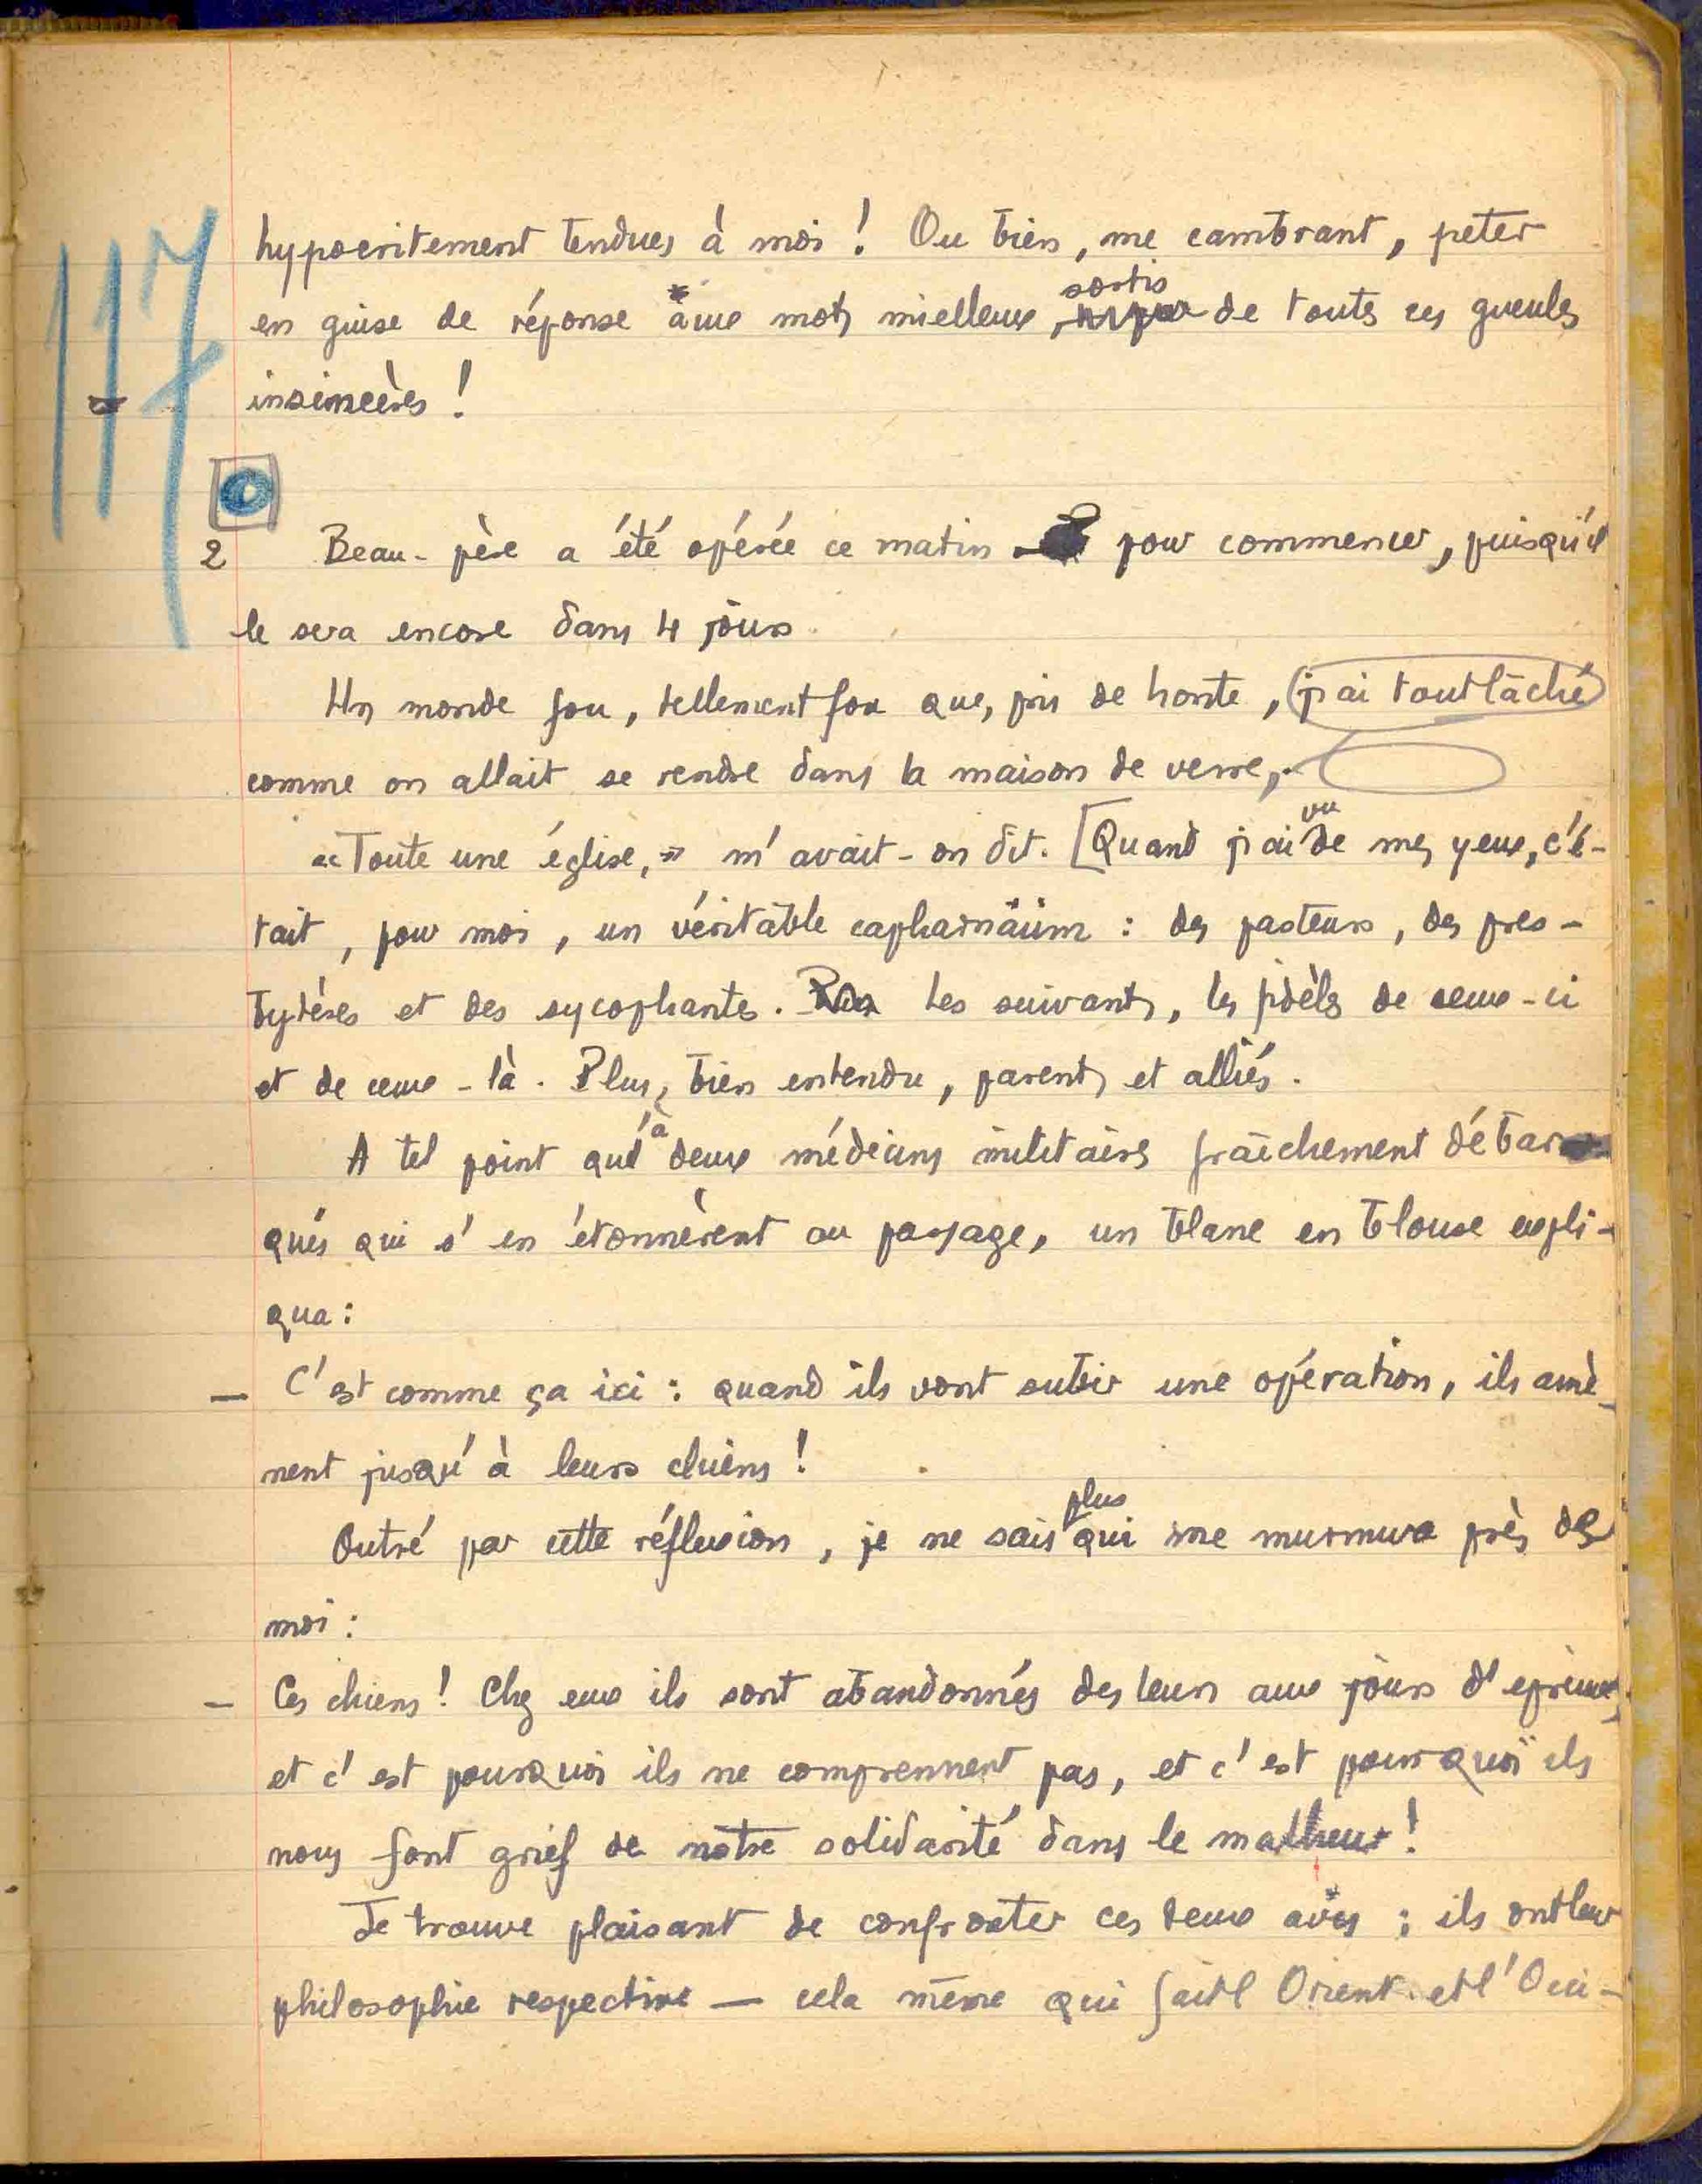 117
hypocritement tendues à moi ! Ou bien, me cambrant, peter
en guise de réponse aux mots mielleux, sortis de toutes ces gueules
insincères !
2 Beau-père a été opérée ce matin pour commencer, puisqu'il
le sera encore dans 4 jours.
Un monde fou, tellement fou que, pris de honte, j'ai tout lâché
comme on allait se rendre dans la maison de verre,
« Toute une église, » m'avait-on dit. [Quand j'ai vu de mes yeux, c'é-
tait, pour moi, un véritable capharnäüm : des pasteurs, des pres-
bytères et des sycophantes. Les suivants, les fidèles de ceux-ci
et de ceux-là. Plus, bien entendu, parents et alliés.
A tel point qu'à deux médecins militaires fraîchement débar
qués qui s'en étonnèrent au passage, un blanc en blouse expli-
qua :
— C'est comme ça ici : quand ils vont subir une opération, ils amè-
nent jusqu'à leurs chiens !
Outré par cette réflexion, je ne sais plus qui me murmura près de
moi :
— Ces chiens ! Chez eux ils sont abandonnés des leurs aux jours d'epreuve,
et c'est pourquoi ils ne comprennent pas, et c'est pourquoi ils
nous font grief de notre solidarité dans le malheur !
Je trouve plaisant de confronter ces deux avis : ils ont leur
philosophie respective — cela même qui fait l'Orient et l'Occi-